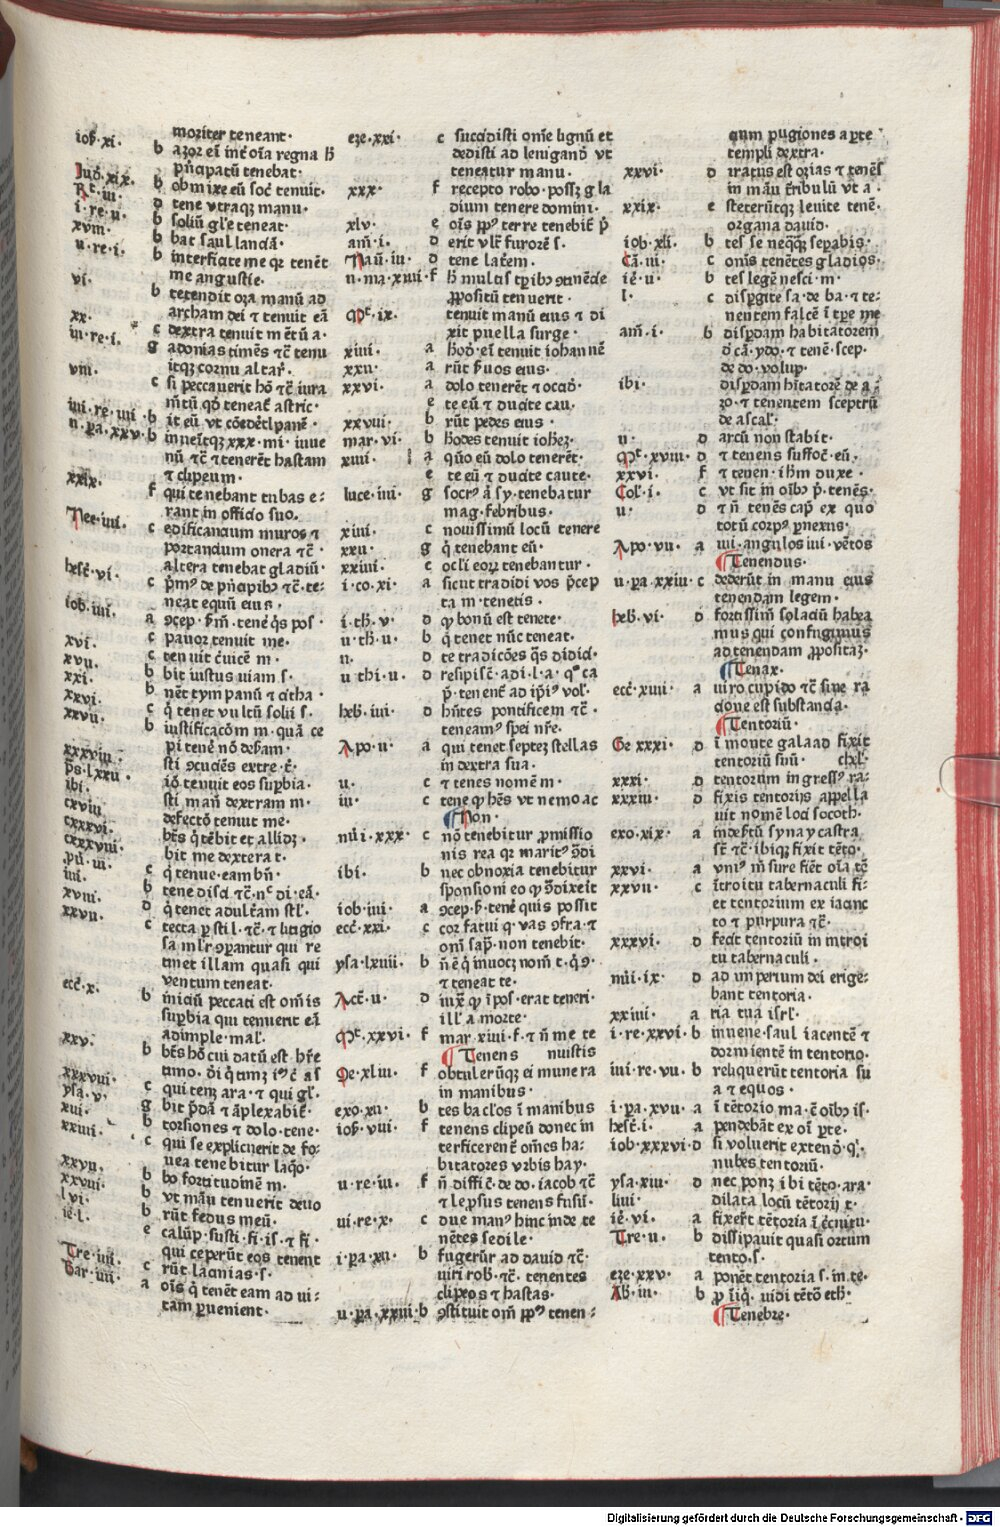 moriter teneant·
ioß·xi· b azor eī int̄ oīa regna ħ
pn̄cipatū tenebat·
Jud·xix· b obmixe eū soc̄ tenuit·
Rt·iii· d tene vtraqꝫ manu·
i·re·ii· b soliū gl̄e teneat·
xviii· b bat saul lanceā·
ii·re·i· b interficite me qꝛ tenēt
me angustie·
vi· b tetendit oza manū ad
archam dei ⁊ tenuit eā
xx· c dextra tenuit mētū a·
iii·re·i· g adonias timēs ⁊c̄ tenu
itqꝫ cornu altar̄·
viii· c si peccauerit hō ⁊c̄ iura
mētū qđ teneat̄ astric·
iiii·re·iiii·b it eū vt cōedēt panē·
ii·pa·xxv·b inueītqꝫ xxx·mi·iuue
nū ⁊c̄ ⁊ tenerēt hastam
⁊ clipeum·
xxix· f qui tenebant tubas e⸗
rant in officio suo·
Nee·iiii· c edificandum muros ⁊
portandum onera ⁊c̄·
altera tenebat gladiū·
hest̄·vi· c p̄mꝰ de pn̄cipibꝰ ⁊c̄·te⸗
neat equū eius·
iob·iiii· a ꝯcep·f̄m·tenē q̄s pos·
xvi· c pauor tenuit me·
xvii· c tenuit ceruicē m·
xxi· b bit iustus uiam s·
xxvi· b nēt tympanū ⁊ citha·
xxvii· c q̄ tenet vultū solii s·
b iustificacōm m·quā ce
pi tenē nō deſam·
xxxviii· sti ꝯcuciēs extre·t̄·
ps·lxxii· iđ tenuit eos supbia·
ibi· sti man̄ dextram m·
cxviii defectō tenuit me·
cxxxvi· bt̄s q̄ tēbit et allidꝫ·
cxxxviii· bit me dextera t·
pu·iii· c q̄ tenue·eam bn̄·
iiii· b tene disci·⁊c̄·nᶜ di·eā·
xviii· d q̄ tenet adult̄am stl̄·
xxvii· c tecta p stil·⁊c̄·⁊ litigio
sa ml̄r ꝯpantur qui re
tinet illam quasi qui
ventum teneat·
ecc̄·x· b iniciū peccati est om̄is
supbia qui tenuerit eā
adimple·mal̄·
xxv· b bt̄s hō cui datū est hr̄e
timo·đi q̄ timꝫ iᵉc̄ as
xxxviii· c qui tenꝫ ara·⁊ qui gl̄·
ysa·v· g bit p̄dā ⁊ āplexabit̄·
xvi· b torsiones ⁊ dolo·tene·
xxiiii· c qui se explicuerit de fo⸗
uea tenebitur laq̄o·
xxvii· b bo fortitudinē m·
xxviii· b vt māu tenuerit deuo
lvi· b rūt fedus meū·
iē·l· e calūp·susti·fi·is·⁊ fi·
qui ceperūt eos tenent
Tre·iiii· c rūt lacinias·s·
Bar·iiii· a oīs q̄ tenēt eam ad ui⸗
tam puenient·
eze·xxi· c succidisti om̄e lignū et
dedisti ad leuigandū vt
teneatur manu·
xxx· f recepto robo·possꝫ gla
dium tenere domini·
xlv· e oīs ppꝰ terre tenebit̄ p̄
am̄·i· d erit vlt̄ furorē s·
Naū·iii· d tene lat̄em·
ii·ma·xiiii·f ħ multis tꝑibꝰ ꝯtinēcie
ꝓpositū tenuerit·
Mt̄·ix· tenuit manū eius ⁊ di
xit puella surge·
xiiii· a hod̄·eī tenuit iohannē
xxii· a rūt ſ̄uos eius·
xxvi· a dolo tenerēt ⁊ occid̄·
e te eū ⁊ ducite cau·
xxviii· b rūt pedes eius·
mar·vi· b hodes tenuit ioħeꝫ·
xiiii· a quō eū dolo tenerēt·
e te eū ⁊ ducite caute·
luce·iiii· g socrꝰ ā sy·tenebatur
mag·febribus·
xiiii· c nouissimū locū tenere
xxii· g q̄ tenebant eū·
xxiiii· c ocl̄i eoꝝ tenebantur·
i·co·xi· a sicut tradidi vos p̄cep
ta m·tenetis·
i·th̄·v· d qꝫ bonū est tenete·
ii·th̄·ii· b q̄ tenet nūc teneat·
ii· d te tradicōes q̄s didici·
ii thi·ii· d resipisc̄·a di·l·a·qᵒ ca
p̄·tenent̄ ad ip̄iꝰ vol̄·
heb̄·iiii· d hn̄tes pontificem ⁊c̄·
teneamꝰ spei nr̄e·
Apo·ii· a qui tenet septeꝫ stellas
in dextra sua·
ii· c ⁊ tenes nomē m·
iii· c tene qꝫ hēs vt nemo ac
Non·
nūi·xxx· c nō tenebitur ꝓmissio
nis rea qꝛ maritꝰ ꝯđi
ibi· b nec obnoxia tenebitur
sponsioni eo qꝫ ꝯdixeit
iob·iiii· a ꝯcep·f̄·tenē quis possit
ecc̄·xxi· c cor fatui q·vas ꝯfra·⁊
om̄ sap̄·non tenebit·
ysa·lxiiii· b n̄ ē q̄ inuocꝫ nom̄ t·q̄ ꝯ·
⁊ teneat te·
Act̄·ii· d iuxͣ qꝫ īpos·erat teneri·
ill'a morte·
Mt̄·xxvi· f mar·xiiii·f·⁊ n̄ me te
Tenens nuistis
Ge·xliii· f obtulerūtqꝫ ei munera
in manibus·
exo·xii· b tes bac̄los ī manibus
ioß·viii· f tenens clipeū donec in
terficerent̄ om̄es ha⸗
bitatores vrbis hay·
ii·re·iii· f n̄ diffic̄·de do·iacob ⁊c̄
⁊ lepsus tenens fusū·
iii·re·x· c due manꝰ hinc inde te
nētes sedile·
i·pa·xii· b fugerūt ad dauid ⁊c̄·
uiri rob̄·⁊c̄·tenentes
clipeos ⁊ hastas·
ii·pa·xxiii·b ꝯstituit om̄ ppꝫ tenen⸗
cium pugiones a pte
templi dextra·
xxvi· d iratus est ozias ⁊ tenēs
in māu t̄ribulū vt a·
xxix· e steterūtqꝫ leuite tenē·
organa dauid·
iob·xli· b tes se neqqꝫ sepabis·
Cā·iii· c om̄s tenētes gladios·
iē·ii· b tes legē nesci·m·
l· c dispgite sa·de ba·⁊ te⸗
nentem falcē ī tꝑe me
am̄·i· b dispdam habitatorem
đ cā·ydo·⁊ tenē·scep·
de do·volup·
ibi· dispdam hītatorē de a⸗
zo·⁊ tenentem sceptrū
de ascal̄·
ii· d arcū non stabit·
Mt̄·xviii· d ⁊ tenens suffoc̄·eū·
xxvi· f ⁊ tenen·iħm duxe·
Col̄·i· c vt sit in oībꝰ p̄·tenēs·
ii· d ⁊ n̄ tenēs cap̄ ex quo
totū corpꝰ p nexus·
Apo·vii· a iiii·angulos iiii·vētos
Tenendus·
ii·pa·xxiii·c dederūt in manu eius
tenendam legem·
heb̄·vi· d fortissimū solaciū habea
mus qui confugimus
ad tenendam ꝓpositaꝫ·
Tenax·
ecc̄·xiiii· a uiro cupido ⁊c̄ sine ra
cione est substancia·
Tentoriū·
Ge xxxi· d ī monte galaad fixit
tentoriū suū·
xxxi· d tentorium ingressꝰ ra⸗ chel̄·
xxxiii· d fixis tentoriis appella
uit nomē loci socoth·
exo·xix· a in deſtū synay castra
st̄ ⁊c̄·ibiqꝫ fixit tēto·
xxvi· a vniꝰ m̄sure fiēt oīa tē
xxvii· c ītroitu tabernaculi fi⸗
et tentorium ex iacinc
to ⁊ purpura ⁊c̄·
xxxvi· d fecit tentoriū in introi
tu tabernaculi·
nūi·ix· d ad imperium dei erige⸗
bant tentoria·
xxiiii· a ria tua isrl̄·
i·re·xxvi· b inuene·saul iacentē ⁊
dormientē in tentorio·
iiii·re·vii· b reliquerūt tentoria su
a ⁊ equos·
i·pa·xvii· a ī tētorio ma·c̄ oībꝰ is·
hest̄·i· a pendebāt ex oī pte·
iob·xxxvi·d si voluerit extendē·qi·
nubes tentoriū·
ysa·xiii· d nec ponꝫ ibi tēto·ara·
liiii· dilata locū tētorii t·
iē·vi· a fixer̄t tētoria ī c̄cuitu·
Tre·ii· b dissipauit quasi ortum
tento·s·
eze·xxv· a ponēt tentoria s·in te·
Ab̄·iii· b p̄ īiq̄·uidi tētō eth̄·
Tenebre·
Digitalisierung gefördert durch die Deutsche Forschungsgemeinschaft - DFG